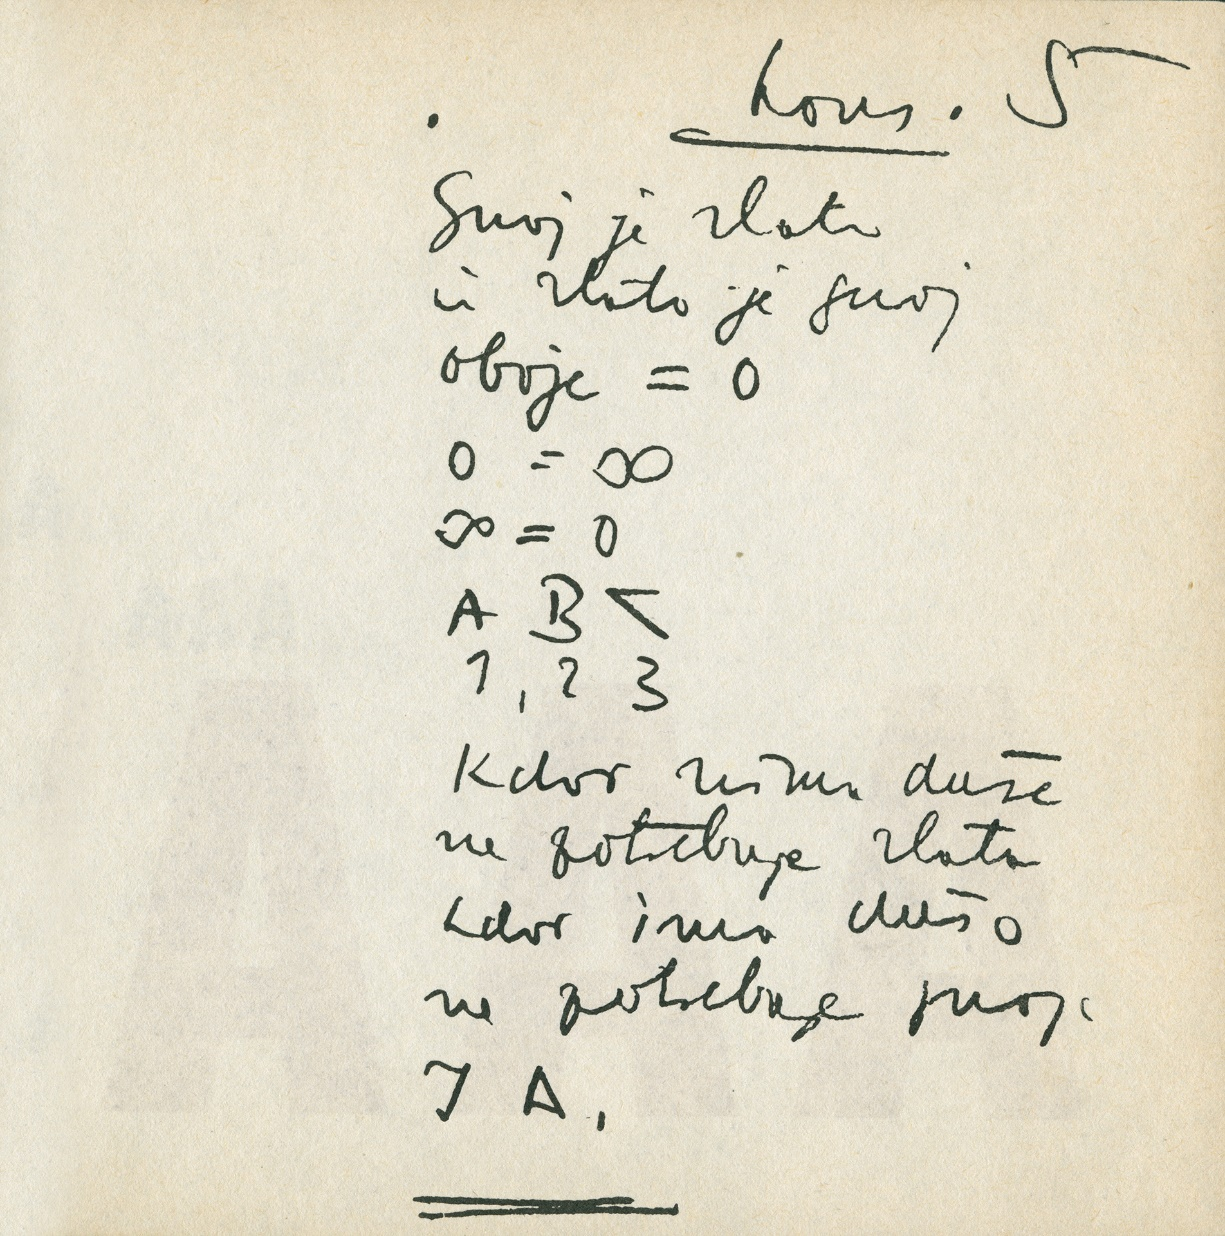 kons. 5
Gnoj je zlato
in zlato je gnoj
oboje = 0
0 = ∞
∞ = 0
A B <
1, 2 3
Kdor nima duše
ne potrebuje zlata
kdor ima dušo
ne potrebuje gnoja
I A,